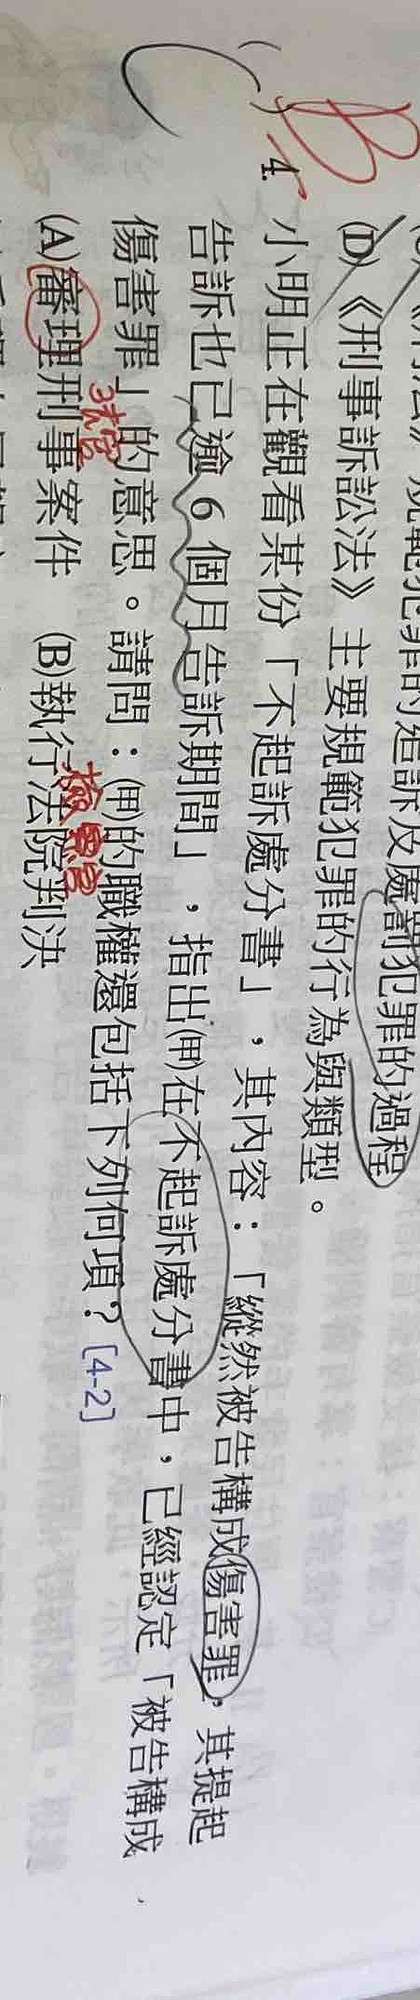 規範犯罪的追訴及處罰犯罪的過程
(D)《刑事訴訟法》主要規範犯罪的行為與類型。
B
4. 小明正在觀看某份「不起訴處分書」，其內容：「縱然被告構成傷害罪，其提起
告訴也已逾6個月告訴期間」，指出㈙在不起訴處分書中，已經認定「被告構成
傷害罪」的意思。請問：㈙的職權還包括下列何項？[4-2]
檢察官
(A)審理刑事案件 (B)執行法院判決
法官